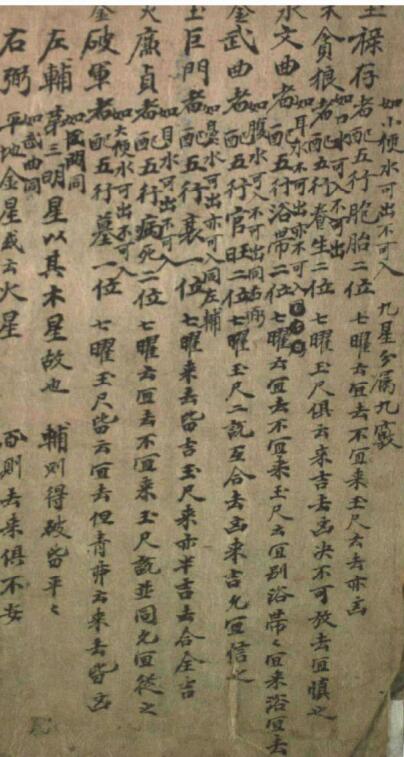 九星分属九竅
土祿存者配五行胞胎二位 七曜云宜去不宜来玉尺云去亦凶
如小便水可出不可入
木貪狼者配五行養生二位 七曜玉尺俱云来吉去凶决不可放去宜慎之
如口水可入不可出
水文曲者配五行浴帶二位 七曜云宜去不宜来玉尺云宜别浴帶帶宜来浴宜去
如耳水不可出亦不可入
金武曲者配五行官旺二位 七曜玉尺二說互合去凶来吉允宜信之
如腹水可入不可出同右弼
土巨門者配五行衰一位 七曜来去皆吉玉尺来亦半吉去合全吉
如鼻水可出亦可入同左輔
火廉貞者配五行病死二位 七曜云宜去不宜来玉尺說並同允宜從之
如目水可出不可入
金破軍者配五行墓一位 七曜玉尺皆云宜去但青囊云来去皆凶
如大便水可出不可入
左輔 第三明星以其木星故也 輔則得破皆平之
如巨門同
右弼 平地金星或云火星 否則去来俱不妨
如武曲同